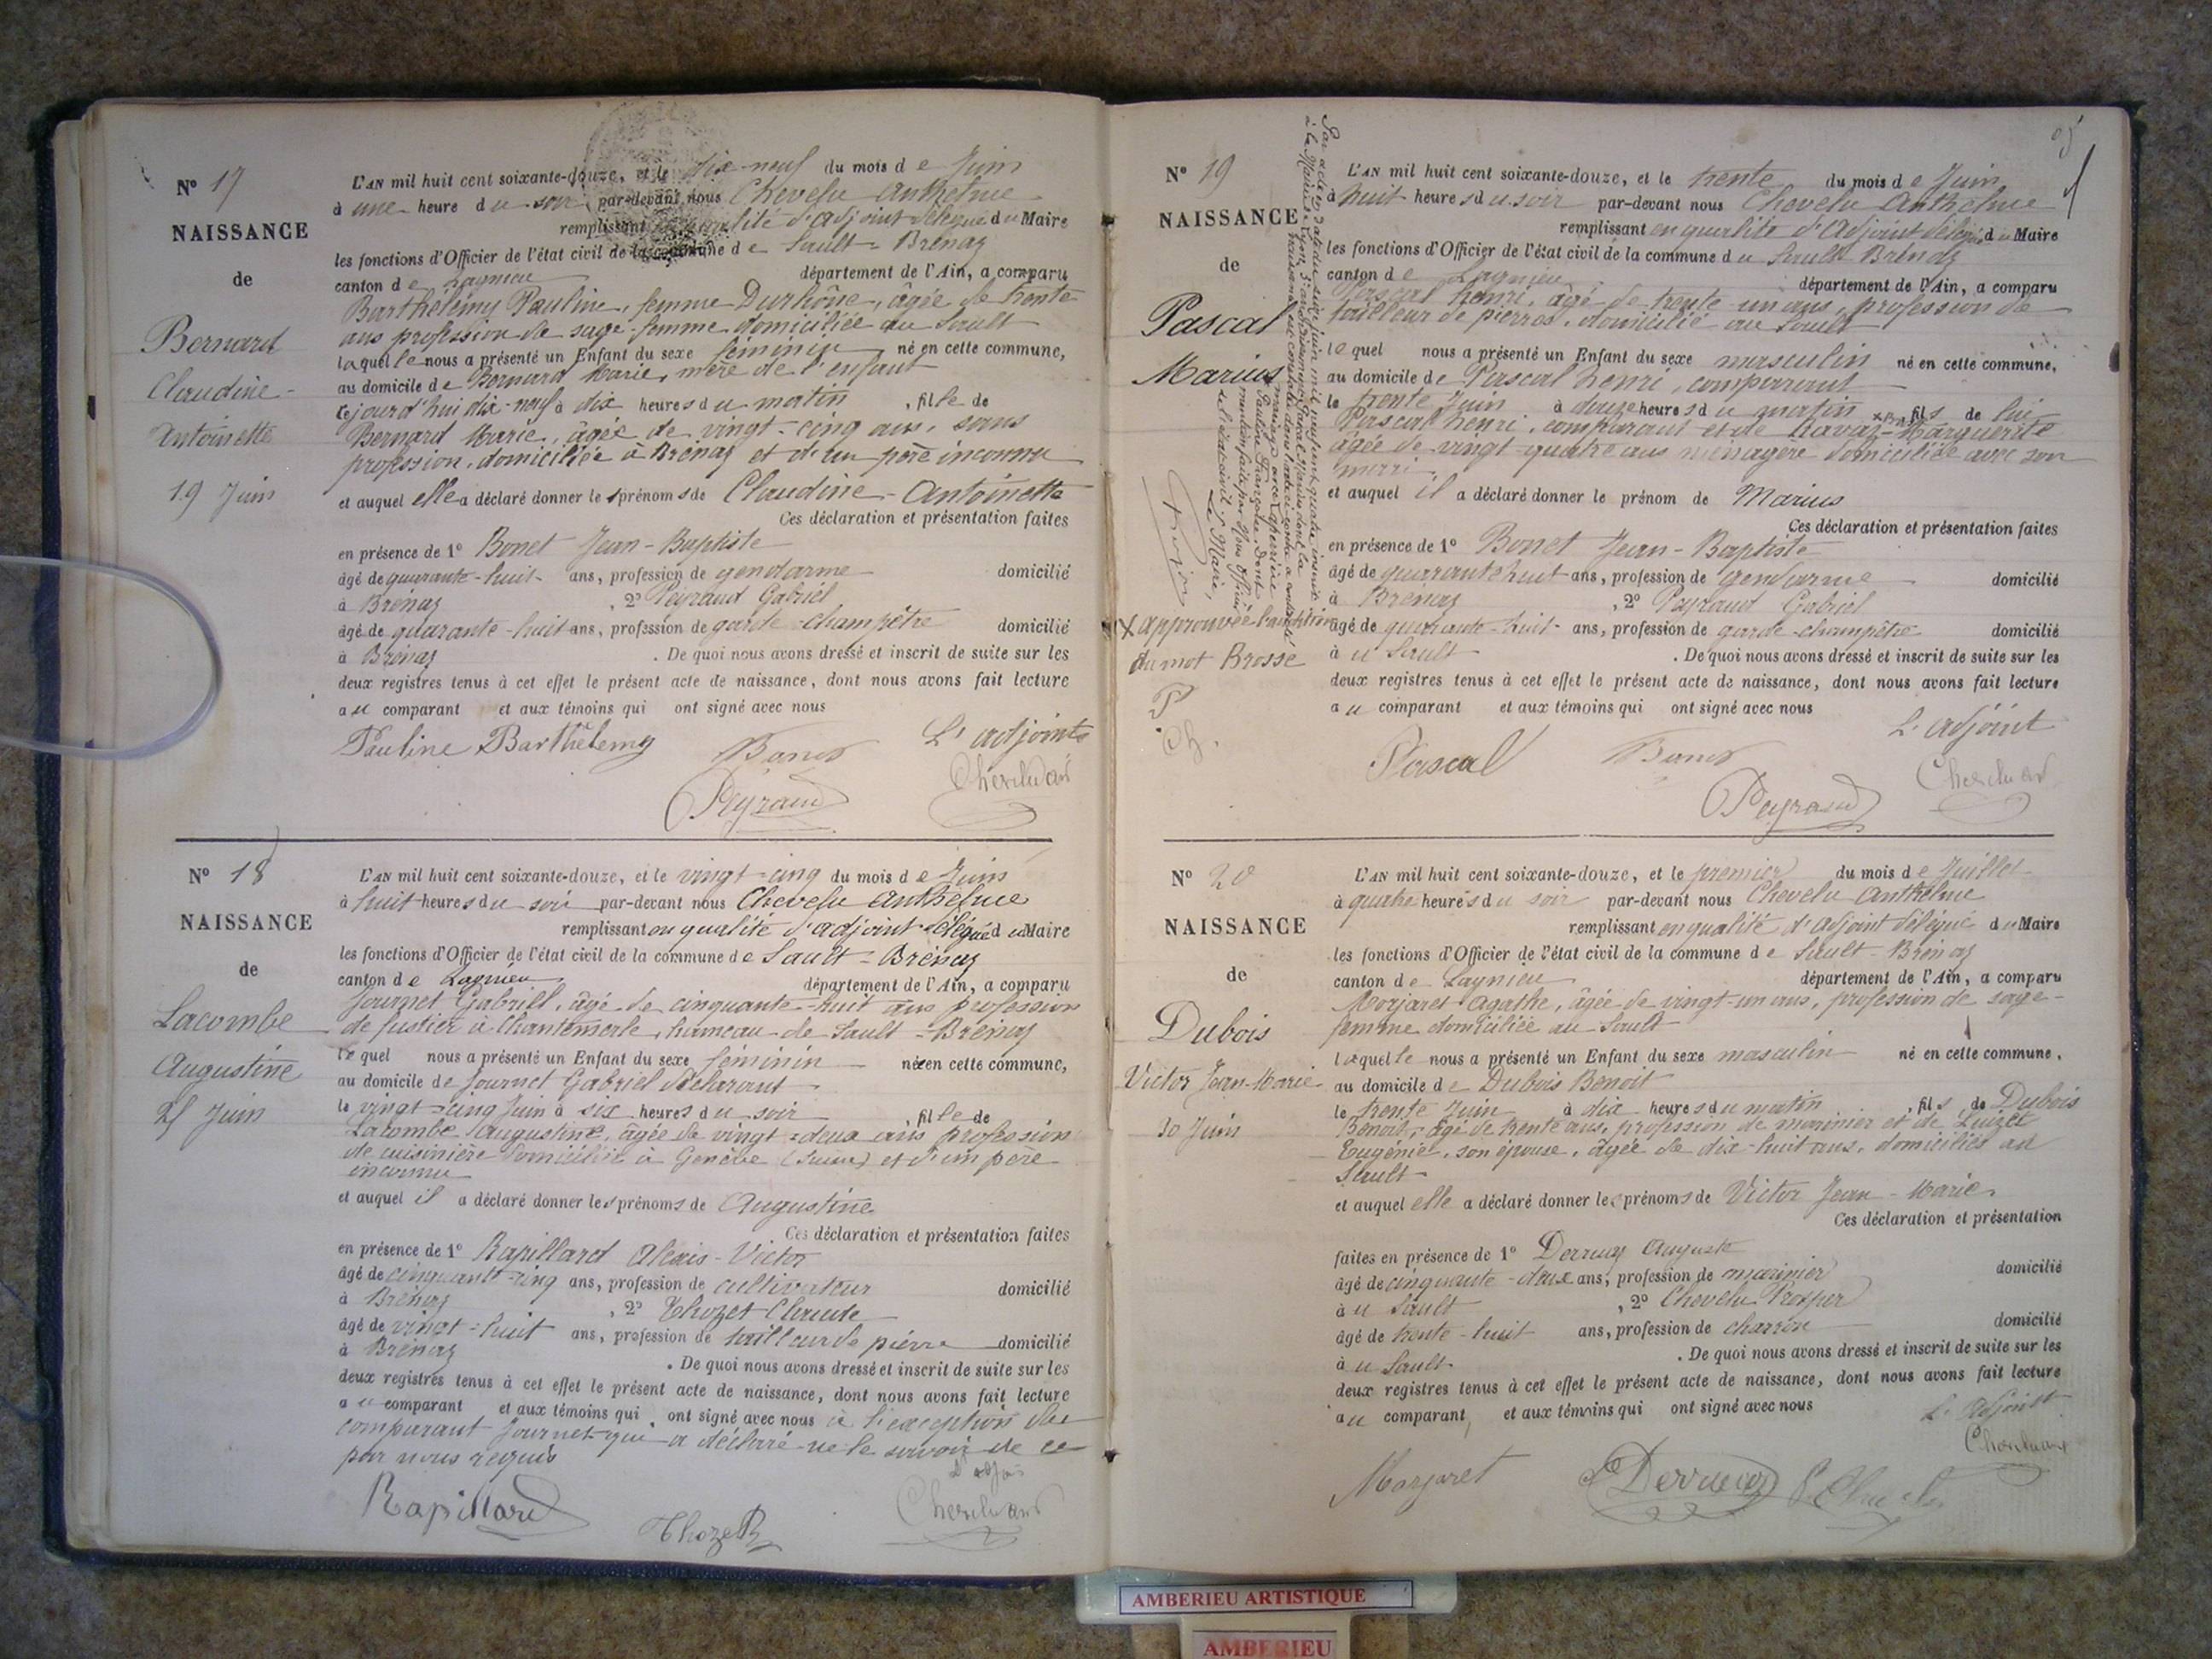 N° 17
NAISSANCE
de
Bernard
Claudine-
Antoinette
19 Juin
L'AN mil huit cent soixante-douze, et le dix-neuf du mois de Juin
à une heure du soir par-devant nous Chevelu Anthelme
remplissant en qualité d'adjoint délégué du Maire
les fonctions d'Officier de l'état civil de la commune de Sault-Brénaz
canton de Lagnieu département de l'Ain, a comparu
Barthélémy Pauline, femme Durhône, âgée de trente
ans profession de sage-femme domiciliée au Sault
laquelle nous a présenté un Enfant du sexe féminin né en cette commune,
au domicile de Bernard Marie, mère de l'enfant
cejourd'hui dix-neuf à dix heures du matin, fille de
Bernard Marie, âgée de vingt-cinq ans, sans
profession, domiciliée à Brénaz et d'un père inconnu
et auquel elle a déclaré donner les prénoms de Claudine-Antoinette
Ces déclaration et présentation faites
en présence de 1° Bonet Jean-Baptiste
âgé de quarante-huit ans, profession de gendarme domicilié
à Brénaz, 2° Peyraud Gabriel
âgé de quarante-huit ans, profession de garde-champêtre domicilié
à Brénaz. De quoi nous avons dressé et inscrit de suite sur les
deux registres tenus à cet effet le présent acte de naissance, dont nous avons fait lecture
au comparant et aux témoins qui ont signé avec nous
Pauline Barthélemy Bonet L'adjoint
Peyraud
N° 18
NAISSANCE
de
Lacombe
Augustine
25 Juin
L'AN mil huit cent soixante-douze, et le vingt-cinq du mois de Juin
à huit heures du soir par-devant nous Chevelu Anthelme
remplissant en qualité d'adjoint délégué du Maire
les fonctions d'Officier de l'état civil de la commune de Sault-Brénaz
canton de Lagnieu département de l'Ain, a comparu
Journet Gabriel, âgé de cinquante-huit ans profession
de justier à Chantemerle, hameau de Sault-Brénaz
lequel nous a présenté un Enfant du sexe féminin née en cette commune,
au domicile de Journet Gabriel déclarant
le vingt-cinq Juin à six heures du soir, fille de
Lacombe Augustine, âgée de vingt-deux ans profession
de cuisinière domiciliée à Genève (Suisse) et d'un père
inconnu
et auquel il a déclaré donner les prénoms de Augustine
Ces déclaration et présentation faites
en présence de 1° Rapillard Alexis-Victor
âgé de cinquante-cinq ans, profession de cultivateur domicilié
à Brénaz, 2° Thozet Claude
âgé de vingt-huit ans, profession de tailleur de pierre domicilié
à Brénaz. De quoi nous avons dressé et inscrit de suite sur les
deux registres tenus à cet effet le présent acte de naissance, dont nous avons fait lecture
au comparant et aux témoins qui ont signé avec nous à l'exception du
comparant Journet qui a déclaré ne le savoir de ce
par nous requis
Rapillard Thozet
N° 19
NAISSANCE
de
Pascal
Marius
X approuvée l'addition
du mot Brosse
P
Ch.
L'AN mil huit cent soixante-douze, et le trente du mois de Juin
à huit heures du soir par-devant nous Chevelu Anthelme
remplissant en qualité d'adjoint délégué du Maire
les fonctions d'Officier de l'état civil de la commune du Sault Brénaz
canton de Lagnieu département de l'Ain, a comparu
Pascal henri, âgé de trente-un ans, profession de
tailleur de pierres, domicilié au Sault
lequel nous a présenté un Enfant du sexe masculin né en cette commune,
au domicile de Pascal henri, comparant
le trente Juin à douze heures du matin, fils de lui
Pascal henri, comparant et de Ravaz-Marguerite
âgée de vingt-quatre ans ménagère domiciliée avec son
marri
et auquel il a déclaré donner le prénom de Marius
Ces déclaration et présentation faites
en présence de 1° Bonet Jean-Baptiste
âgé de quarante huit ans, profession de gendarme domicilié
à Brénaz, 2° Peyraud Gabriel
âgé de quarante-huit ans, profession de garde-champêtre domicilié
au Sault. De quoi nous avons dressé et inscrit de suite sur les
deux registres tenus à cet effet le présent acte de naissance, dont nous avons fait lecture
au comparant et aux témoins qui ont signé avec nous
L'adjoint
Pascal Bonet
Peyraud
N° 20
NAISSANCE
de
Dubois
Victor Jean-Marie
30 Juin
L'AN mil huit cent soixante-douze, et le premier du mois de Juillet
à quatre heures du soir par-devant nous Chevelu Anthelme
remplissant en qualité d'adjoint délégué du Maire
les fonctions d'Officier de l'état civil de la commune de Sault-Brénaz
canton de Lagnieu département de l'Ain, a comparu
Morjaret Agathe, âgée de vingt-un ans, profession de sage-
femme domiciliée au Sault
laquelle nous a présenté un Enfant du sexe masculin né en cette commune.
au domicile de Dubois Benoit
le trente Juin à dix heures du matin, fils de Dubois
Benoit, âgé de trente ans, profession de marinier et de Luizet
Eugénie, son épouse, âgée de dix-huit ans, domiciliés au
Sault
et auquel elle a déclaré donner les prénoms de Victor Jean-Marie.
Ces déclaration et présentation
faites en présence de 1° Derruaz Auguste
âgé de cinquante-deux ans, profession de marinier domicilié
au Sault, 2° Chevelu Prosper
âgé de trente-huit ans, profession de charron domicilié
au Sault. De quoi nous avons dressé et inscrit de suite sur les
deux registres tenus à cet effet le présent acte de naissance, dont nous avons fait lecture
au comparant, et aux témoins qui ont signé avec nous
L'adjoint
Morjaret Derruaz
AMBERIEU ARTISTIQUE
AMBERIEU